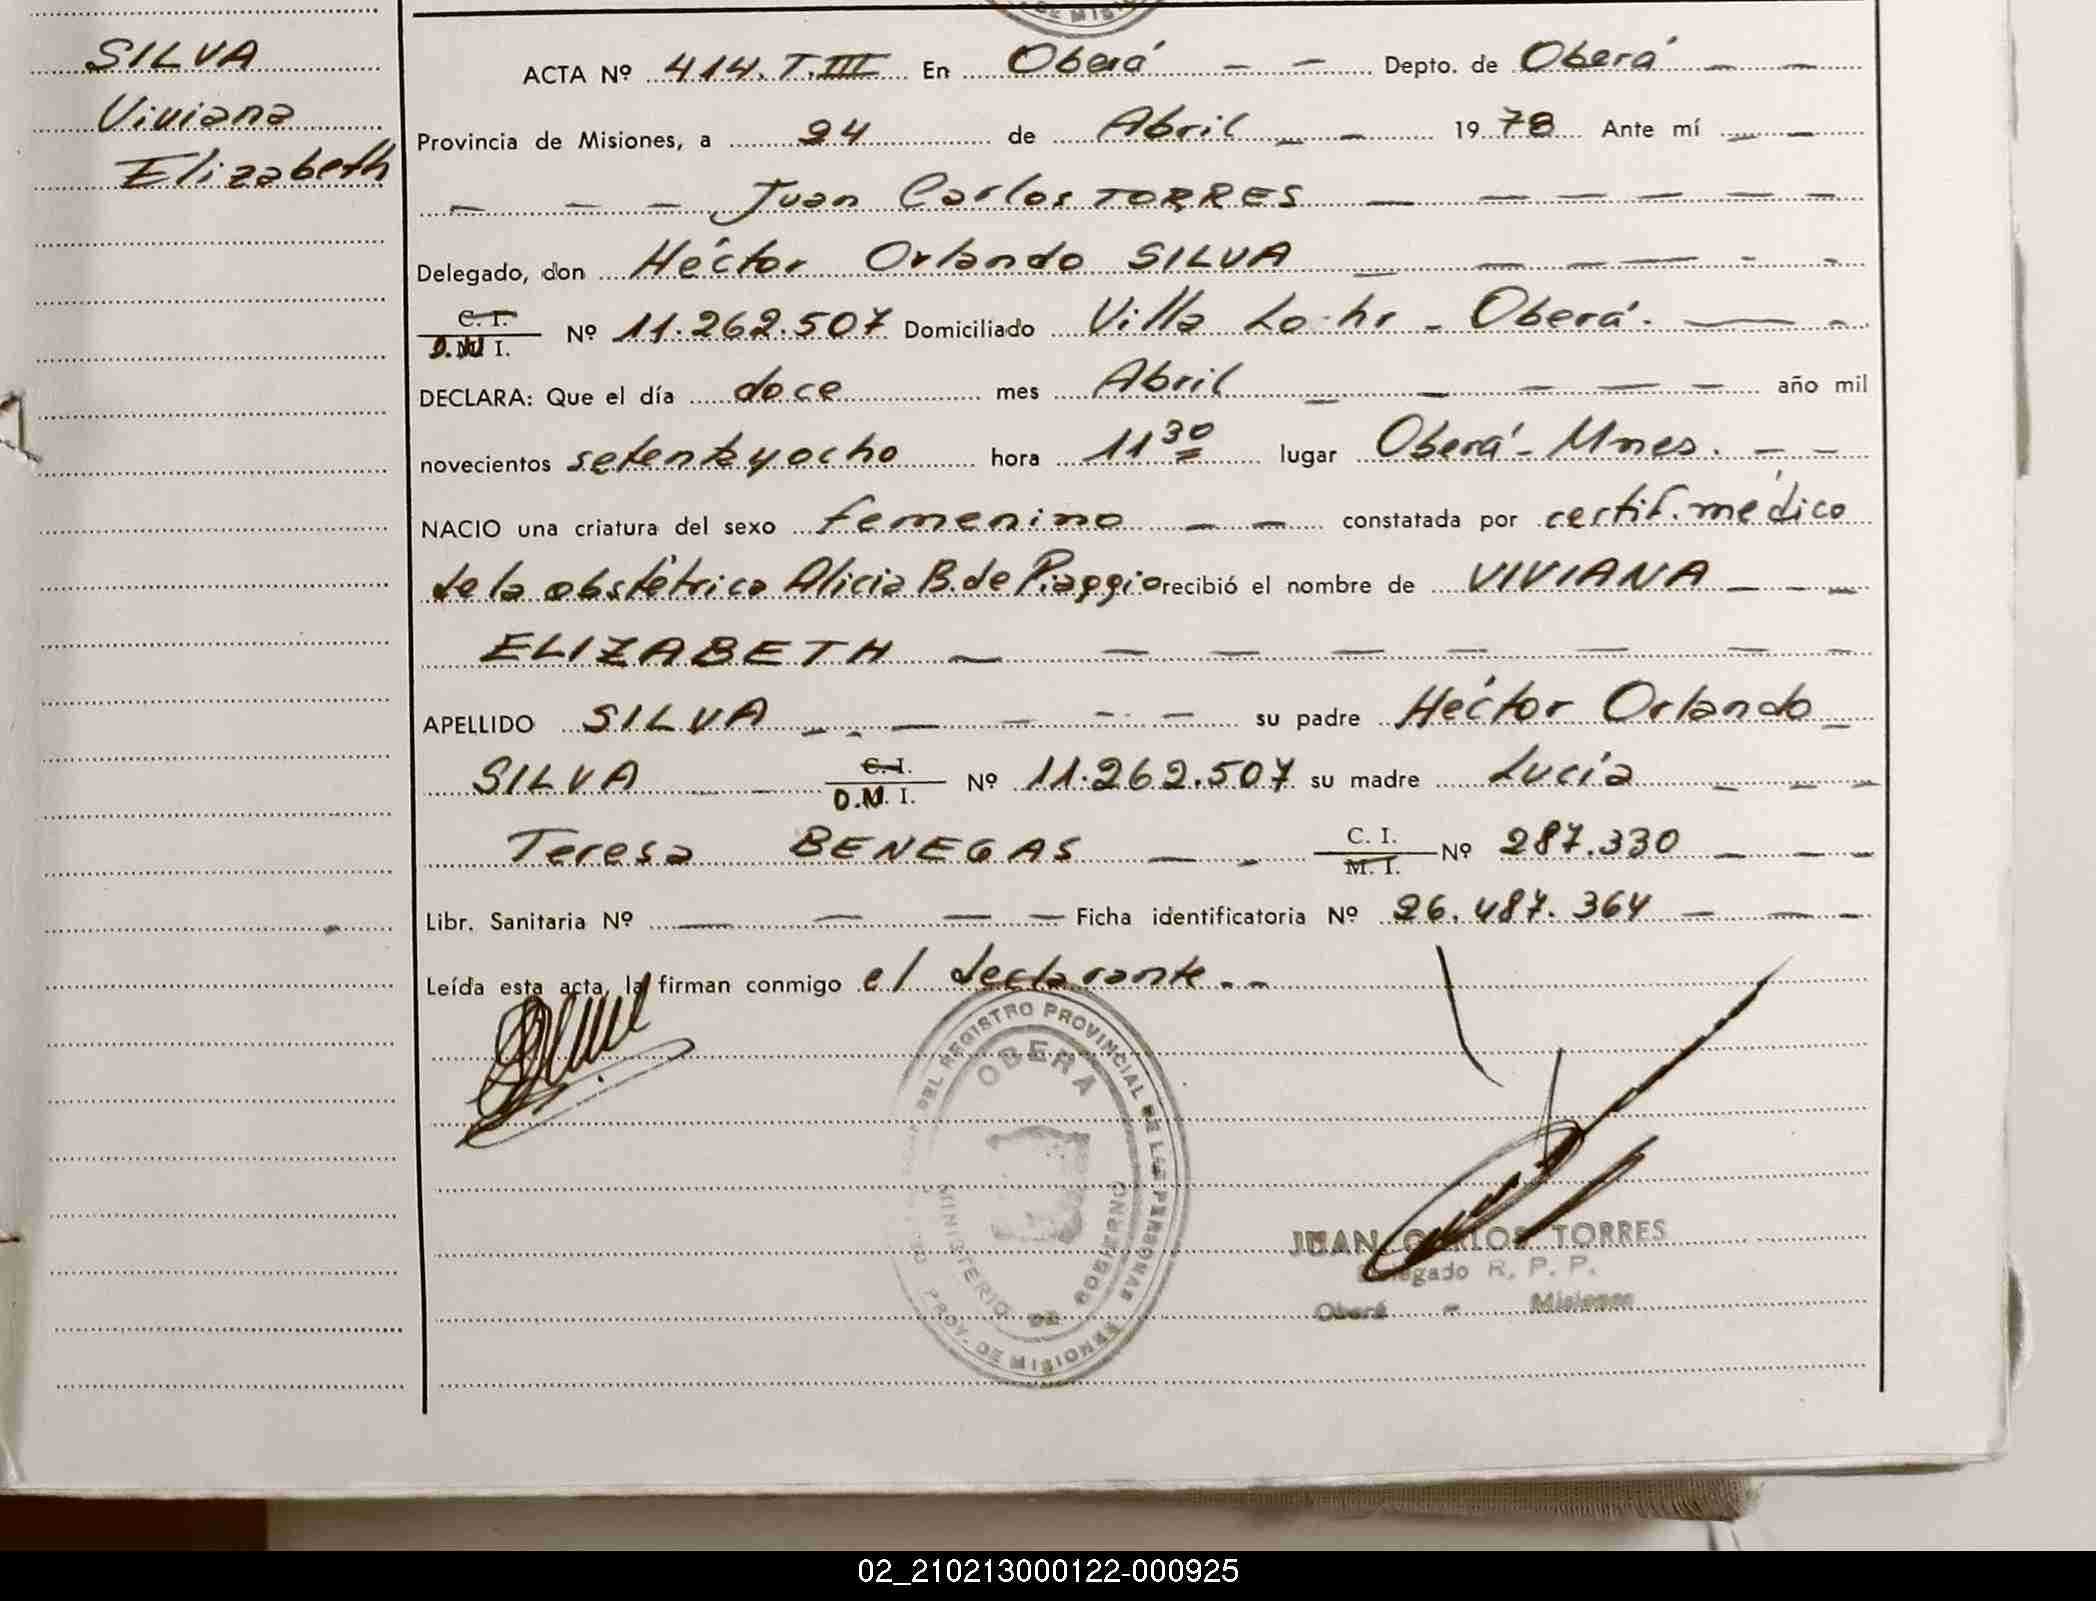 DE MISIO
SILVA
Viviana
Elizabeth
ACTA Nº 414.T.III En Oberá - - Depto. de Oberá - -
Provincia de Misiones, a 24 de Abril - - 1978 Ante mí - -
- - - Juan Carlos TORRES - - - - - -
Delegado, don Héctor Orlando SILVA - - - - - -
C. I.
D.N I. Nº 11.262.507 Domiciliado Villa Lohr - Oberá. - -
DECLARA: Que el día doce mes Abril - - - - - año mil
novecientos setenta y ocho hora 11 30 lugar Oberá - Mnes. - -
NACIO una criatura del sexo femenino - - constatada por certif. médico
de la obstétrica Alicia B. de Piaggio recibió el nombre de VIVIANA - - -
ELIZABETH - - - - - - - -
APELLIDO SILVA - - - - - - su padre Héctor Orlando -
SILVA - - C. I.
D.N. I. Nº 11.262.507 su madre Lucía - - -
Teresa BENEGAS - - C. I.
M. I. Nº 287.330 - - -
Libr. Sanitaria Nº - - - - Ficha identificatoria Nº 26.487.364 - - -
Leída esta acta, la firman conmigo el declarante. - -
DEL REGISTRO PROVINCIAL DE LAS PERSONAS
OBERA
MINISTERIO DE GOBIERNO
PROV. DE MISIONES
JUAN CARLOS TORRES
Delegado R. P. P.
Oberá - Misiones
02_210213000122-000925